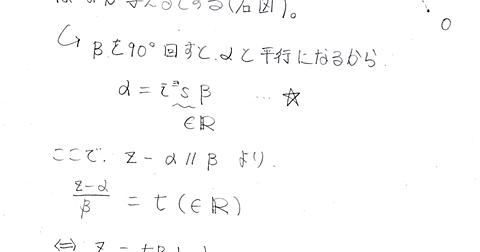 とする(右図)。
O
↳ βを90°回すと、αと平行になるから
α = i s β … ☆
∈ℝ
ここで、z - α // β より、
(z-α)/β = t (∈ℝ)
⇔ z = tβ + α